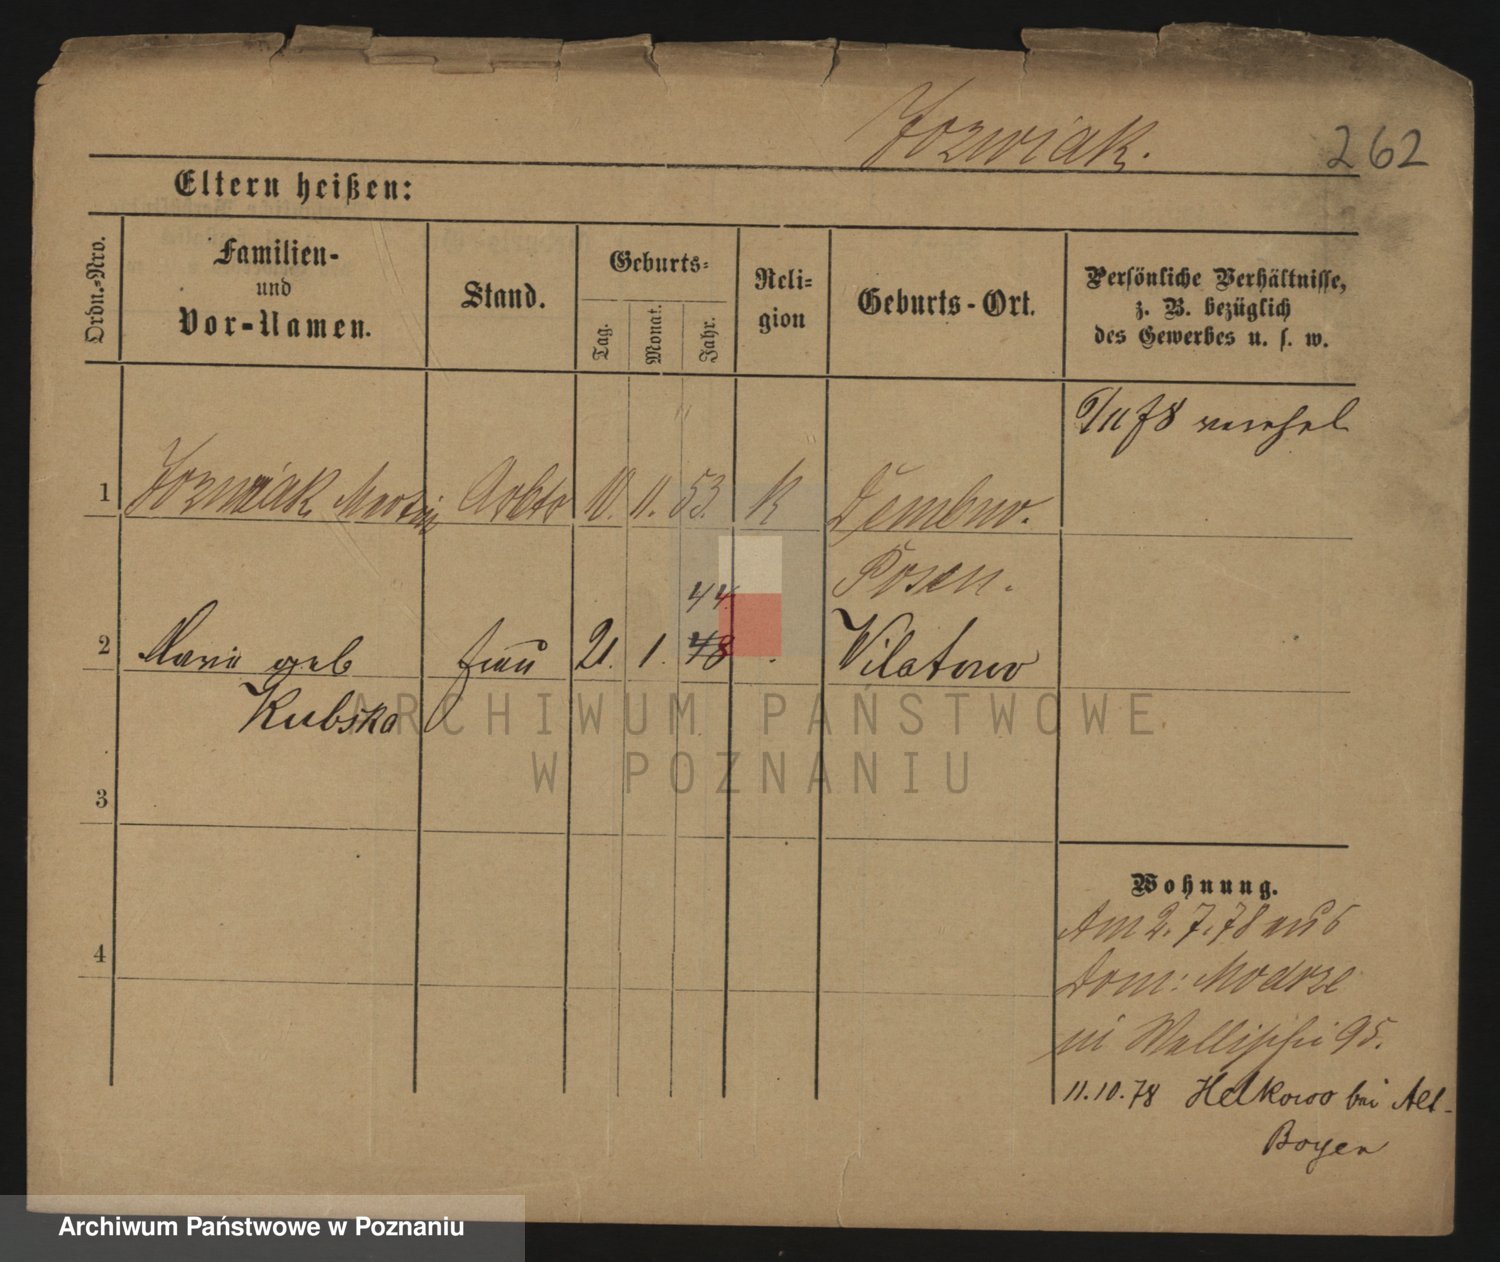 Jozwiak.
262
Eltern heißen:
Ordn.-Nro.
Familien-
und
Vor-Namen.
Stand.
Geburts-
Tag.
Monat.
Jahr.
Reli-
gion
Geburts-Ort.
Persönliche Verhältnisse,
z. B. bezüglich
des Gewerbes u. s. w.
/11 78
1 Jozwiak Martin Arbtr 10. 11. 53. K Dembno.
Posen.
44.
2 Marie geb Frau 21. 1. 48 Wilatowo
Kubska
ARCHIWUM PAŃSTWOWE
W POZNANIU
3
Wohnung.
Am 2.7.78 aus
4
Dom: Modrze
in Wallischei 95.
11.10.78 Helkowo bei Alt-
Boyen
Archiwum Państwowe w Poznaniu